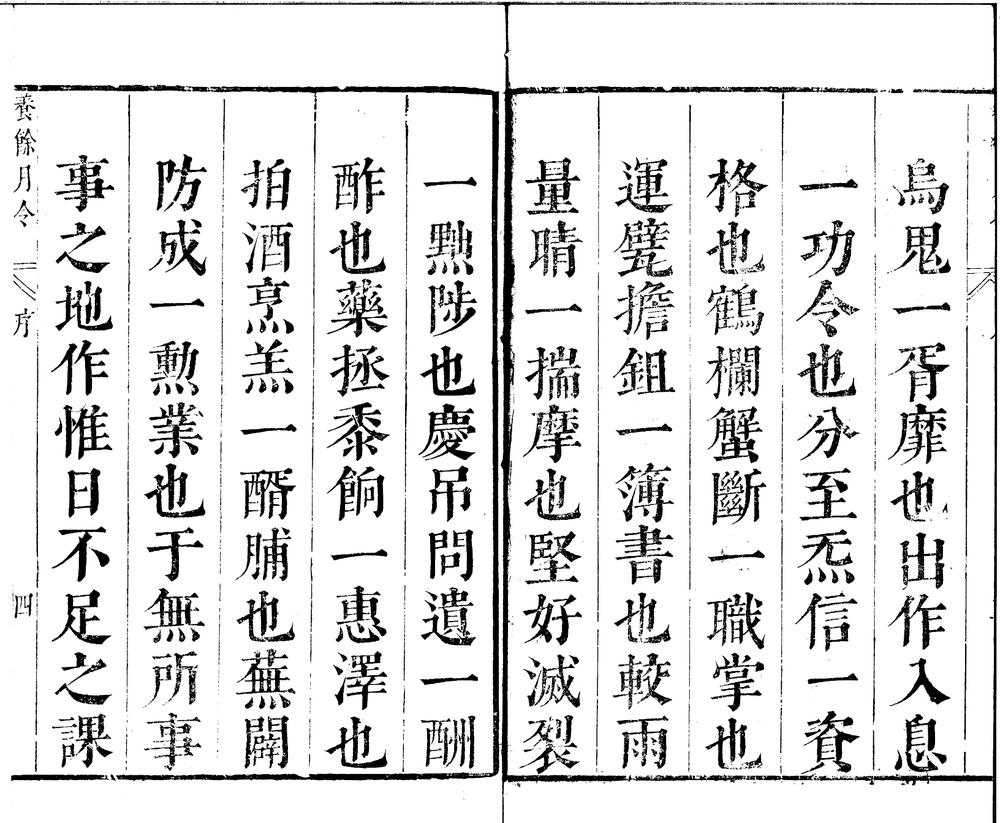 烏鬼一胥靡也出作入息
一功令也分至炁信一資
格也鶴欄蟹斷一職掌也
運甓擔鉏一簿書也較雨
量晴一揣摩也堅好滅裂
一黜陟也慶吊問遺一酬
酢也藥拯黍餉一惠澤也
拍酒烹羔一醑脯也蕪闢
防成一勲業也于無所事
事之地作惟日不足之課
養餘月令 序 四